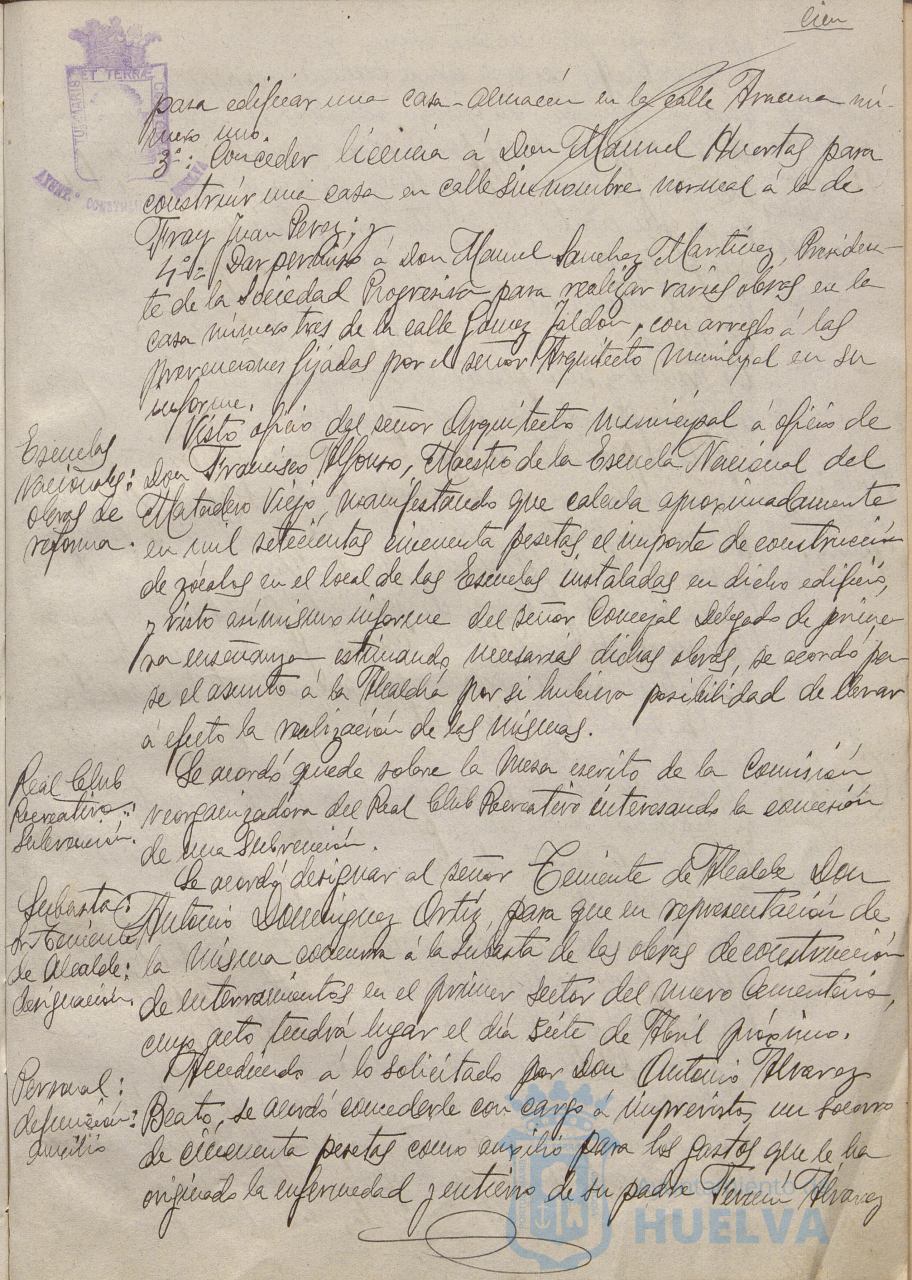 cien
para edificar una casa-almacén en la calle Aracena nú-
mero uno.
3º: Conceder licencia á Don Manuel Huertas para
construir una casa en calle sin nombre normal á la de
Fray Juan Perez; y
4º= Dar permiso á Don Manuel Sanchez Martínez, Presiden-
te de la Sociedad Progresiva para realizar varias obras en la
casa número tres de la calle Gómez Jaldón, con arreglo á las
prevenciones fijadas por el señor Arquitecto municipal en su
informe.
Escuelas
nacionales:
obras de
reforma.
Visto oficio del señor Arquitecto municipal á oficio de
Don Francisco Alfonso, Maestro de la Escuela Nacional del
Matadero Viejo, manifestando que calcula aproximadamente
en mil setecientas cincuenta pesetas, el importe de construcción
de zócalos en el local de las Escuelas instaladas en dicho edificio,
y visto asimismo informe del señor Concejal Delegado de prime-
ra enseñanza estimando necesarias dichas obras, se acordó pa-
se el asunto á la Alcaldía por si hubiera posibilidad de llevar
á efecto la realización de las mismas.
Real Club
Recreativo:
Subvención.
Se acordó quede sobre la mesa escrito de la Comisión
reorganizadora del Real Club Recreativo interesando la concesión
de una subvención.
Subasta:
Sr. Teniente
de Alcalde:
designación.
Se acordó designar al señor Teniente de Alcalde Don
Antonio Domínguez Ortíz, para que en representación de
la misma concurra á la subasta de las obras de construcción
de enterramientos en el primer sector del nuevo Cementerio,
cuyo acto tendrá lugar el día siete de Abril próximo.
Personal:
defunción:
auxilio
Atendiendo á lo solicitado por Don Antonio Alvarez
Beato, se acordó concederle con cargo á imprevistos, un socorro
de cincuenta pesetas como auxilio para los gastos que le ha
originado la enfermedad y entierro de su padre Fermín Álvarez
Ayuntamiento de
HUELVA